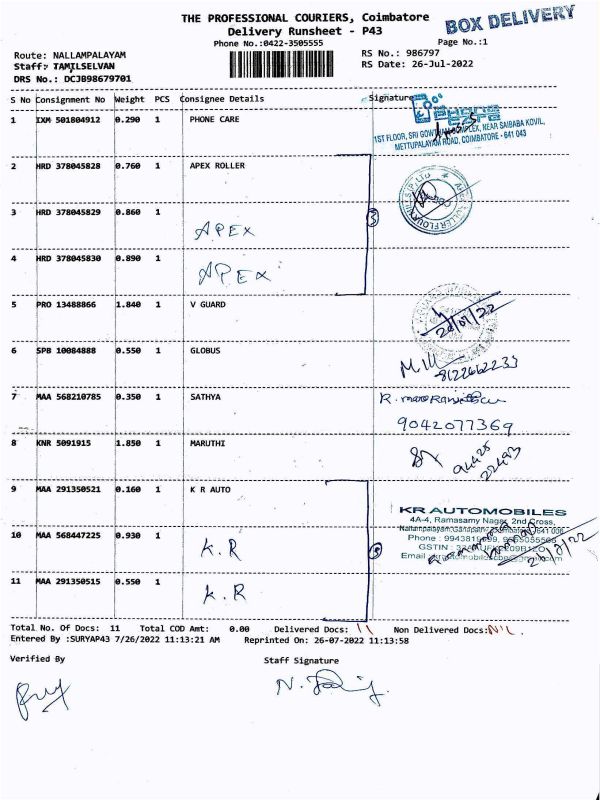 THE PROFESSIONAL COURIERS, Coimbatore
BOX DELIVERY
Delivery Runsheet - P43
Phone No.:0422-3505555
Page No.:1
Route: NALLAMPALAYAM
RS No.: 986797
Staff: TAMILSELVAN
RS Date: 26-Jul-2022
DRS No.: DCJB98679701
S No Consignment No Weight PCS Consignee Details Signature
1 IXM 501804912 0.290 1 PHONE CARE
PHONE CARE
1ST FLOOR, SRI GOWTHAM COMPLEX, NEAR SAIBABA KOVIL,
METTUPALAYAM ROAD, COIMBATORE - 641 043
2 HRD 378045828 0.760 1 APEX ROLLER
3 HRD 378045829 0.860 1 APEX
3
4 HRD 378045830 0.890 1 APEX
5 PRO 13488866 1.840 1 V GUARD
6 SPB 10084888 0.550 1 GLOBUS
8122662233
7 MAA 568210785 0.350 1 SATHYA
9042077369
8 KNR 5091915 1.850 1 MARUTHI
9 MAA 291350521 0.160 1 K R AUTO
KR AUTOMOBILES
4A-4, Ramasamy Nagar, 2nd Cross,
10 MAA 568447225 0.930 1 K.R
11 MAA 291350515 0.550 1 K.R
Total No. Of Docs: 11 Total COD Amt: 0.00 Delivered Docs: 11 Non Delivered Docs: NIL
Entered By :SURYAP43 7/26/2022 11:13:21 AM Reprinted On: 26-07-2022 11:13:58
Verified By Staff Signature